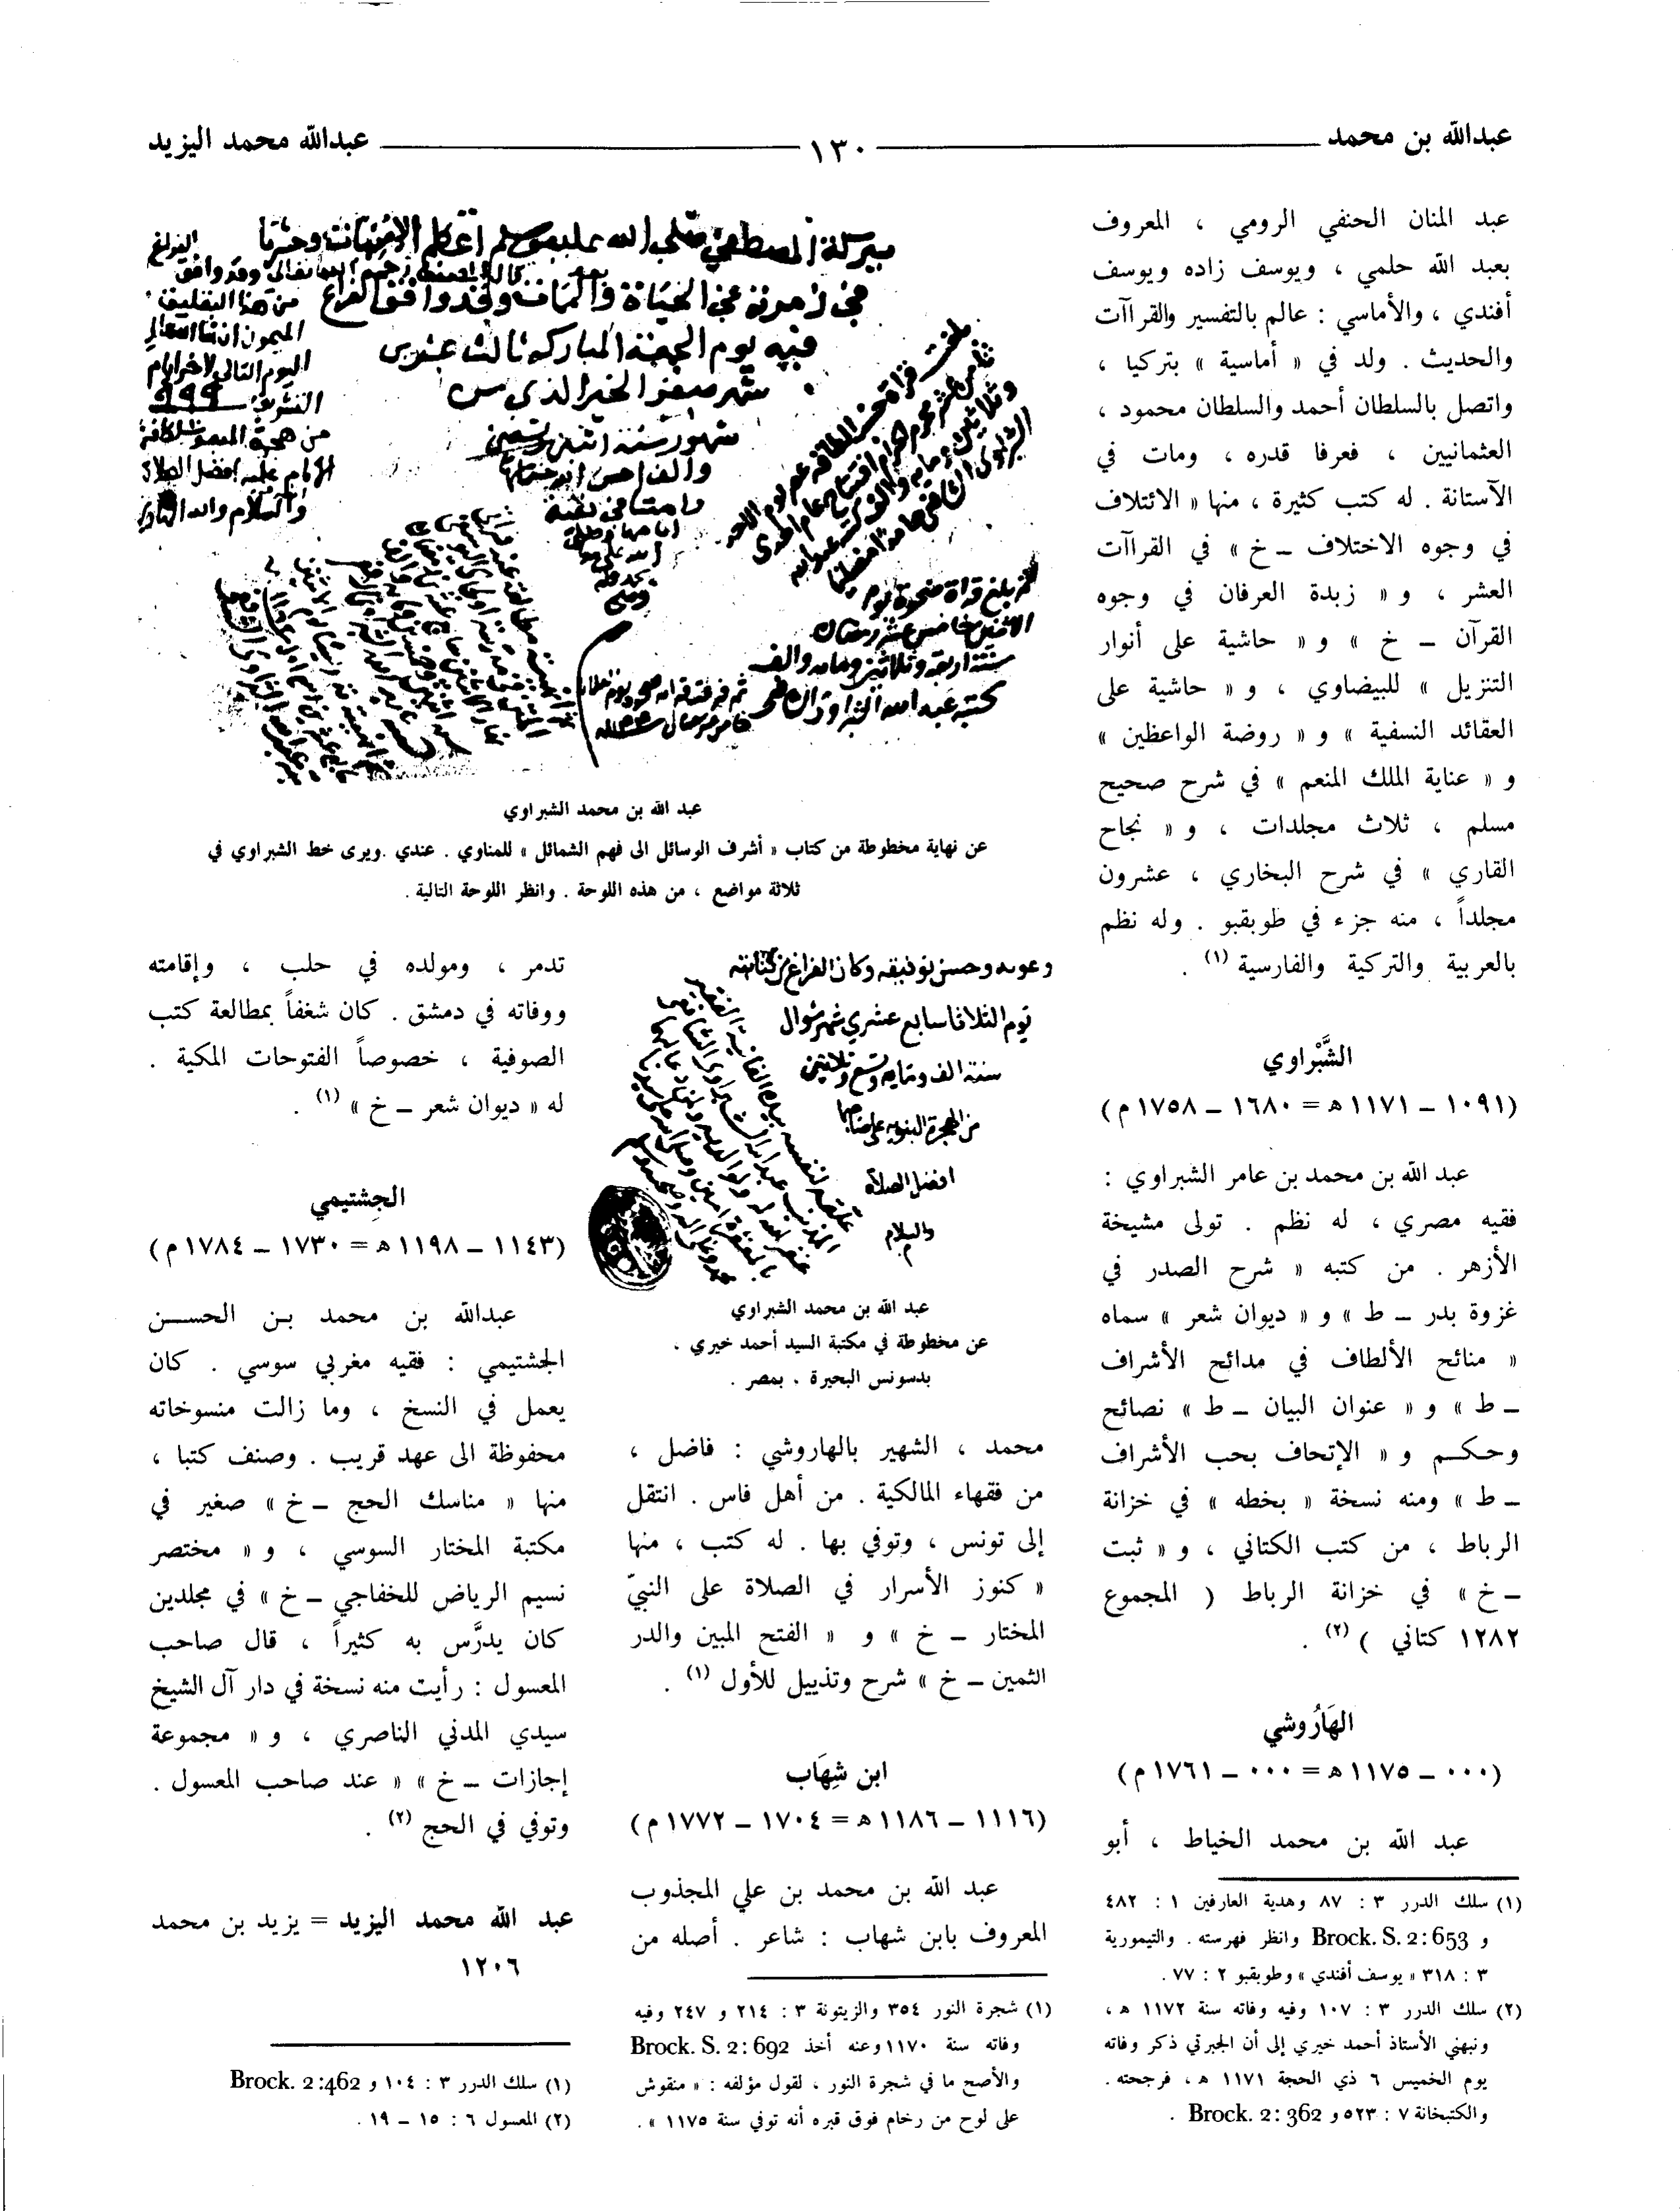 عبدالله بن محمد
١٣٠
عبدالله محمد اليزيد
عبد المنان الحنفي الرومي ، المعروف
بعبد الله حلمي ، ويوسف زاده ويوسف
أفندي ، والأماسي : عالم بالتفسير والقراآت
والحديث . ولد في « أماسية » بتركيا ،
واتصل بالسلطان أحمد والسلطان محمود ،
العثمانيين ، فعرفا قدره ، ومات في
الآستانة . له كتب كثيرة ، منها « الائتلاف
في وجوه الاختلاف ـ خ » في القراآت
العشر ، و « زبدة العرفان في وجوه
القرآن ـ خ » و « حاشية على أنوار
التنزيل » للبيضاوي ، و « حاشية على
العقائد النسفية » و « روضة الواعظين »
و « عناية الملك المنعم » في شرح صحيح
مسلم ، ثلاث مجلدات ، و « نجاح
القاري » في شرح البخاري ، عشرون
مجلداً ، منه جزء في طوبقبو . وله نظم
بالعربية والتركية والفارسية (١) .
الشَّبْراوي
(١٠٩١ ـ ١١٧١ ه = ١٦٨٠ ـ ١٧٥٨ م)
عبد الله بن محمد بن عامر الشبراوي :
فقيه مصري ، له نظم . تولى مشيخة
الأزهر . من كتبه « شرح الصدر في
غزوة بدر ـ ط » و « ديوان شعر » سماه
« منائح الألطاف في مدائح الأشراف
ـ ط » و « عنوان البيان ـ ط » نصائح
وحكم و « الإتحاف بحب الأشراف
ـ ط » ومنه نسخة « بخطه » في خزانة
الرباط ، من كتب الكتاني ، و « ثبت
ـ خ » في خزانة الرباط ( المجموع
١٢٨٢ كتاني ) (٢) .
الهَارُوشي
(٠٠٠ ـ ١١٧٥ ه = ٠٠٠ ـ ١٧٦١ م)
عبد الله بن محمد الخياط ، أبو
(١) سلك الدرر ٣ : ٨٧ وهدية العارفين ١ : ٤٨٢
و Brock. S. 2:653 وانظر فهرسته . والتيمورية
٣ : ٣١٨ « يوسف أفندي » وطوبقبو ٢ : ٧٧ .
(٢) سلك الدرر ٣ : ١٠٧ وفيه وفاته سنة ١١٧٢ ه ،
ونبهني الأستاذ أحمد خيري إلى أن الجبرتي ذكر وفاته
يوم الخميس ٦ ذي الحجة ١١٧١ ه ، فرجحته .
والكتبخانة ٧ : ٥٢٣ و Brock. 2: 362 .
فيه يوم الجمعة المباركة ثالث عشر من
شهر صفر الخير الذي من
عبد الله بن محمد الشبراوي
عن نهاية مخطوطة من كتاب « أشرف الوسائل الى فهم الشمائل » للمناوي . عندي . ويرى خط الشبراوي في
ثلاثة مواضع ، من هذه اللوحة . وانظر اللوحة التالية .
وعونه وحسن توفيقه وكان الفراغ من كتابته
يوم الثلاثا سابع عشري شهر شوال
سنة الف ومايه وتسع وثلاثين
من الهجرة النبوية على صاحبها
افضل الصلاة
والسلام
عبد الله بن محمد الشبراوي
عن مخطوطة في مكتبة السيد أحمد خيري ،
بدسونس البحيرة ، بمصر .
محمد ، الشهير بالهاروشي : فاضل ،
من فقهاء المالكية . من أهل فاس . انتقل
إلى تونس ، وتوفي بها . له كتب ، منها
« كنوز الأسرار في الصلاة على النبيّ
المختار ـ خ » و « الفتح المبين والدر
الثمين ـ خ » شرح وتذييل للأول (١) .
ابن شِهَاب
(١١١٦ ـ ١١٨٦ ه = ١٧٠٤ ـ ١٧٧٢ م)
عبد الله بن محمد بن علي المجذوب
المعروف بابن شهاب : شاعر . أصله من
(١) شجرة النور ٣٥٤ والزيتونة ٣ : ٢١٤ و ٢٤٧ وفيه
وفاته سنة ١١٧٠ وعنه أخذ Brock. S. 2:692
والأصح ما في شجرة النور ، لقول مؤلفه : « منقوش
على لوح من رخام فوق قبره أنه توفي سنة ١١٧٥ » .
تدمر ، ومولده في حلب ، وإقامته
ووفاته في دمشق . كان شغفاً بمطالعة كتب
الصوفية ، خصوصاً الفتوحات المكية .
له « ديوان شعر ـ خ » (١) .
الجِشتيمي
(١١٤٣ ـ ١١٩٨ ه = ١٧٣٠ ـ ١٧٨٤ م)
عبدالله بن محمد بن الحسن
الجشتيمي : فقيه مغربي سوسي . كان
يعمل في النسخ ، وما زالت منسوخاته
محفوظة الى عهد قريب . وصنف كتبا ،
منها « مناسك الحج ـ خ » صغير في
مكتبة المختار السوسي ، و « مختصر
نسيم الرياض للخفاجي ـ خ » في مجلدين
كان يدرَّس به كثيراً ، قال صاحب
المعسول : رأيت منه نسخة في دار آل الشيخ
سيدي المدني الناصري ، و « مجموعة
إجازات ـ خ » « عند صاحب المعسول .
وتوفي في الحج (٢) .
عبد الله محمد اليزيد = يزيد بن محمد
١٢٠٦
(١) سلك الدرر ٣ : ١٠٤ و Brock. 2:462
(٢) المعسول ٦ : ١٥ ـ ١٩ .